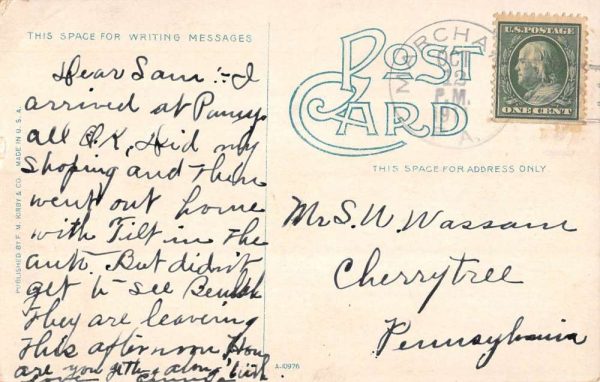 THIS SPACE FOR WRITING MESSAGES
Dear Sam :- I
arrived at Punxsy
all O.K. Did my
Shoping and then
went out home
with Tilt in the
auto. But didn't
get to see Beulah
They are leaveing
this afternoon. How
are you getting along with
POST
CARD
THIS SPACE FOR ADDRESS ONLY
MARCHA
OCT
12
P.M.
A.
U.S. POSTAGE
ONE CENT
Mr S. W. Wassam
Cherrytree
Pennsylvania
PUBLISHED BY F. M. KIRBY & CO. MADE IN U.S.A.
A-10976